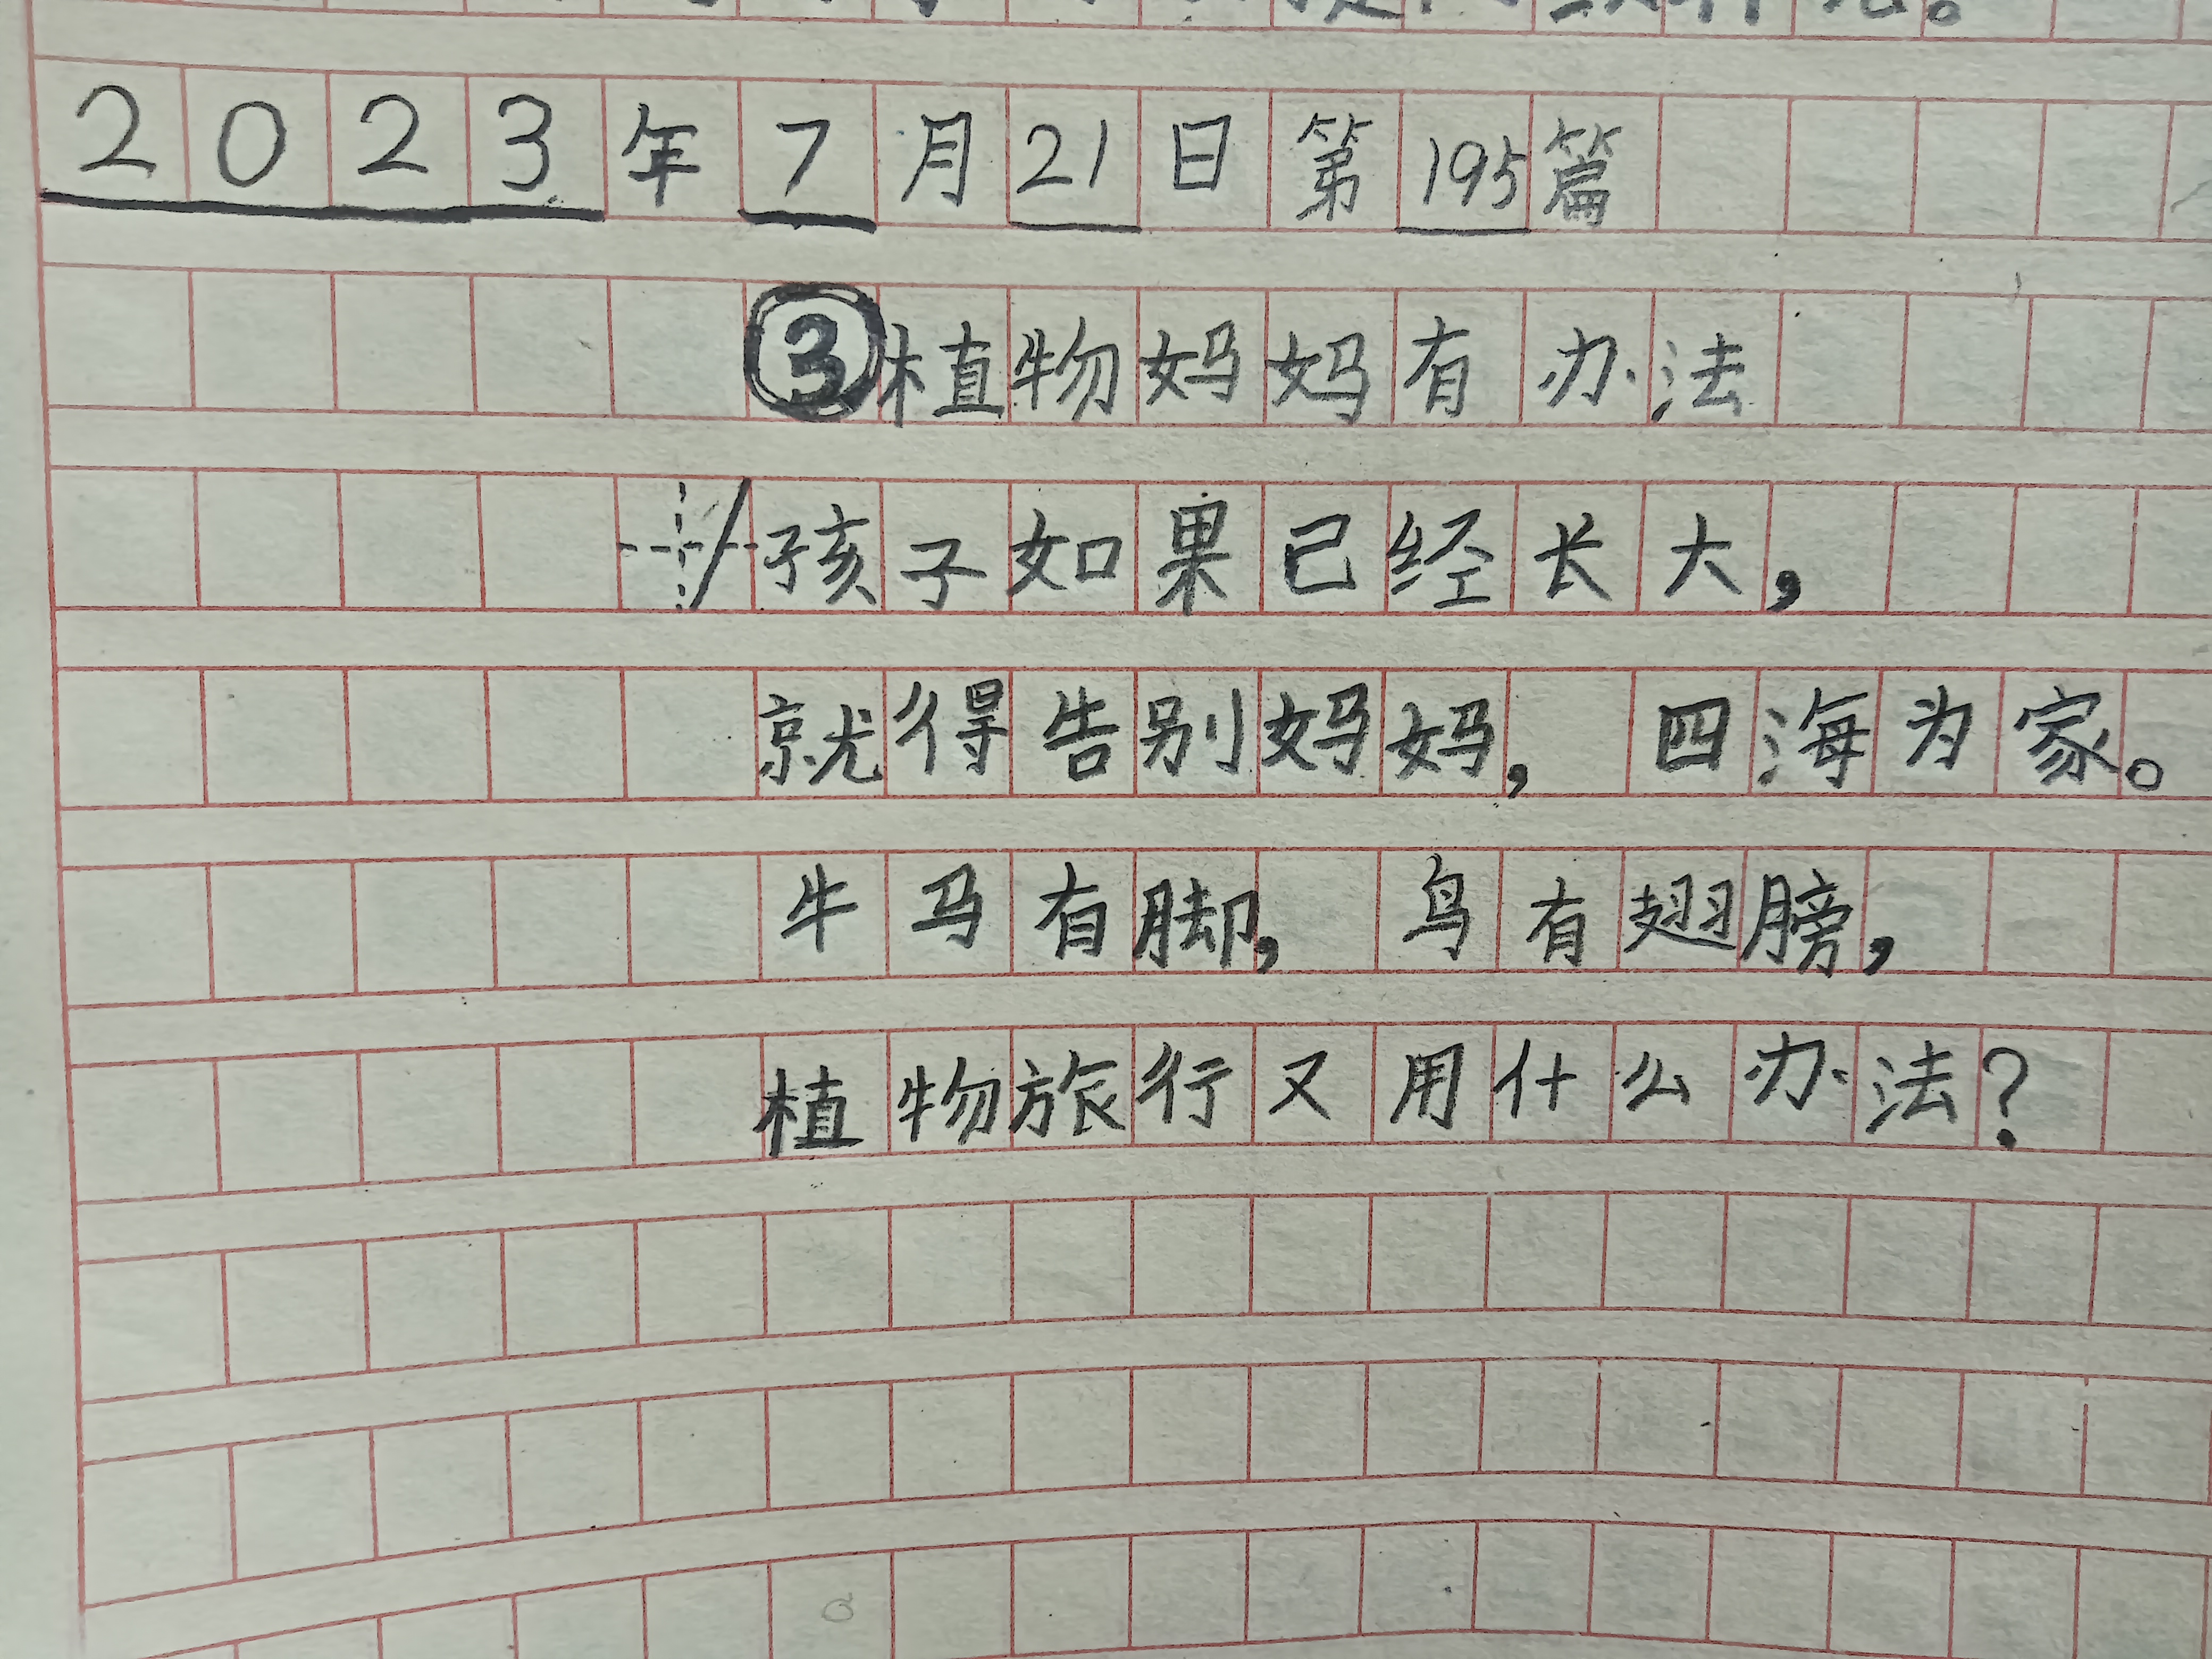 2023年7月21日第195篇
③植物妈妈有办法
孩子如果已经长大，
就得告别妈妈，四海为家。
牛马有脚，鸟有翅膀，
植物旅行又用什么办法？